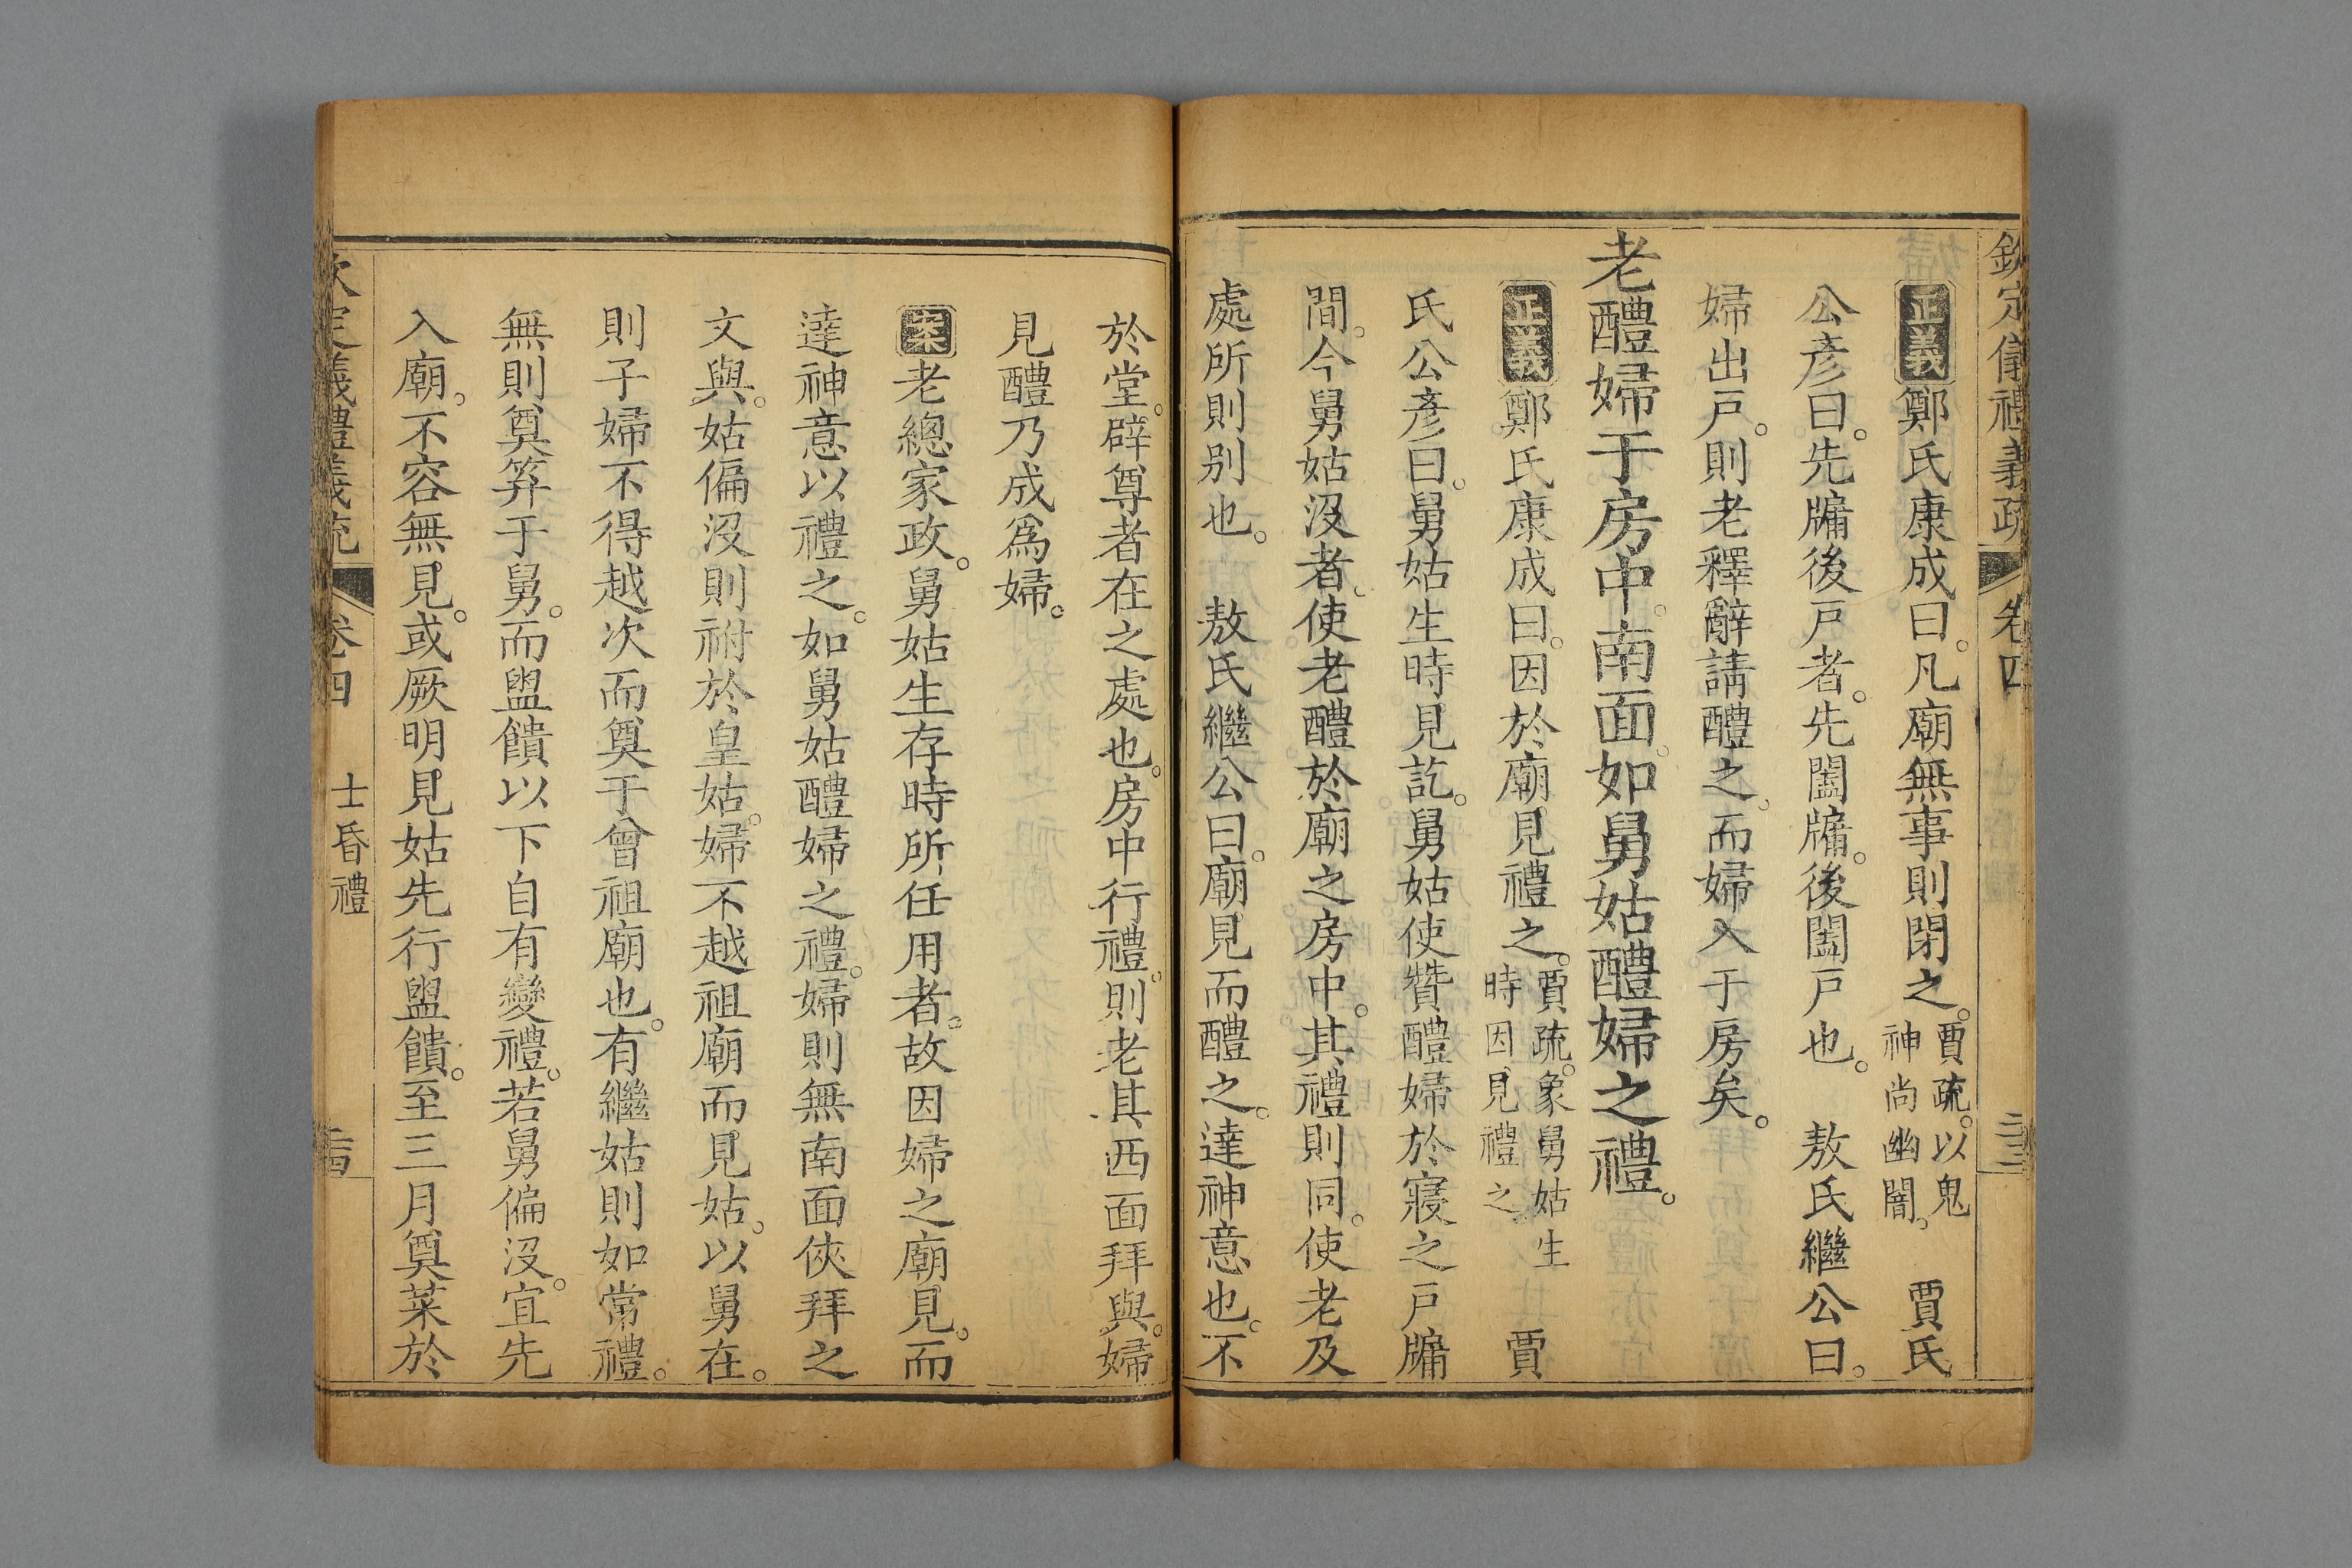 欽定儀禮義疏 卷四 二十三
正義鄭氏康成曰。凡廟無事則閉之。賈疏。以鬼神尚幽闇。 賈氏
公彥曰。先牖後戶者。先闔牖。後闔戶也。 敖氏繼公曰。
婦出戶。則老釋辭請醴之。而婦入于房矣。
老醴婦于房中。南面。如舅姑醴婦之禮。
正義鄭氏康成曰。因於廟見禮之。賈疏。象舅姑生時因見禮之。 賈
氏公彥曰。舅姑生時見訖。舅姑使贊醴婦於寢之戶牖
間。今舅姑沒者。使老醴於廟之房中。其禮則同。使老及
處所則別也。 敖氏繼公曰。廟見而醴之。達神意也。不
於堂。辟尊者在之處也。房中行禮。則老其西面拜與。婦
見醴乃成爲婦。
案老總家政。舅姑生存時所任用者。故因婦之廟見。而
達神意以禮之。如舅姑醴婦之禮。婦則無南面俠拜之
文與。姑偏沒則祔於皇姑。婦不越祖廟而見姑。以舅在。
則子婦不得越次而奠于曾祖廟也。有繼姑則如常禮。
無則奠笲于舅。而盥饋以下自有變禮。若舅偏沒。宜先
入廟。不容無見。或厥明見姑先行盥饋。至三月奠菜於
欽定儀禮義疏 卷四 士昏禮 二十四